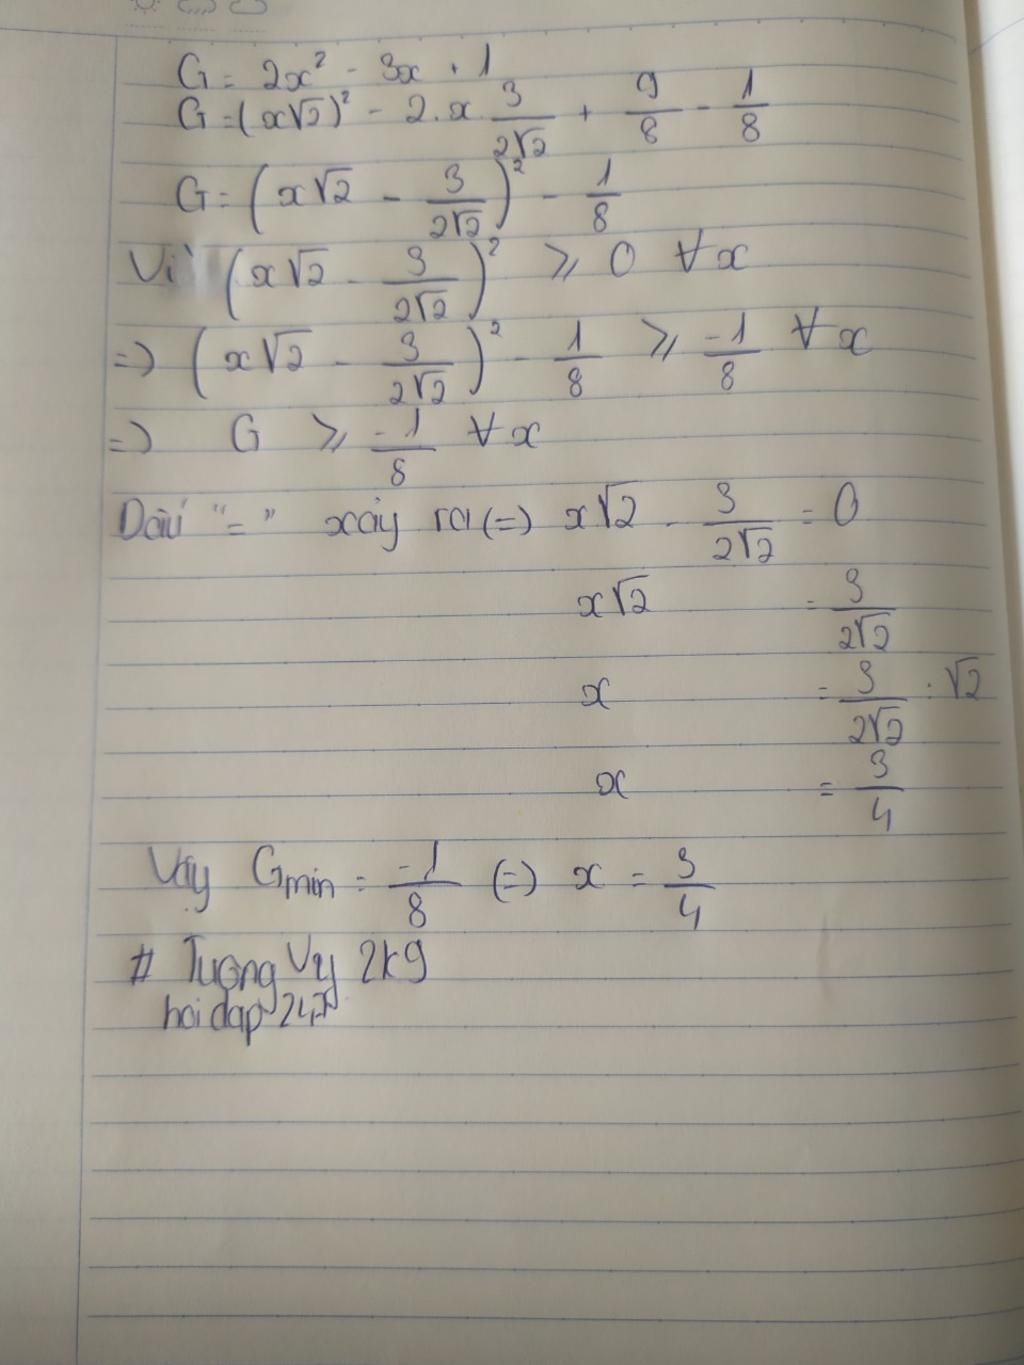 G = 2x² - 3x + 1
G = (x√2)² - 2.x 3/(2√2) + 9/8 - 1/8
G = (x√2 - 3/(2√2))² - 1/8
Vì (x√2 - 3/(2√2))² ⩾ 0 ∀x
=> (x√2 - 3/(2√2))² - 1/8 ⩾ -1/8 ∀x
=> G ⩾ -1/8 ∀x
Dấu "=" xảy ra (=) x√2 - 3/(2√2) = 0
x√2 = 3/(2√2)
x = 3/(2√2) : √2
x = 3/4
Vậy Gmin = -1/8 (=) x = 3/4
# Tuong Vy 2k9
hoidap247